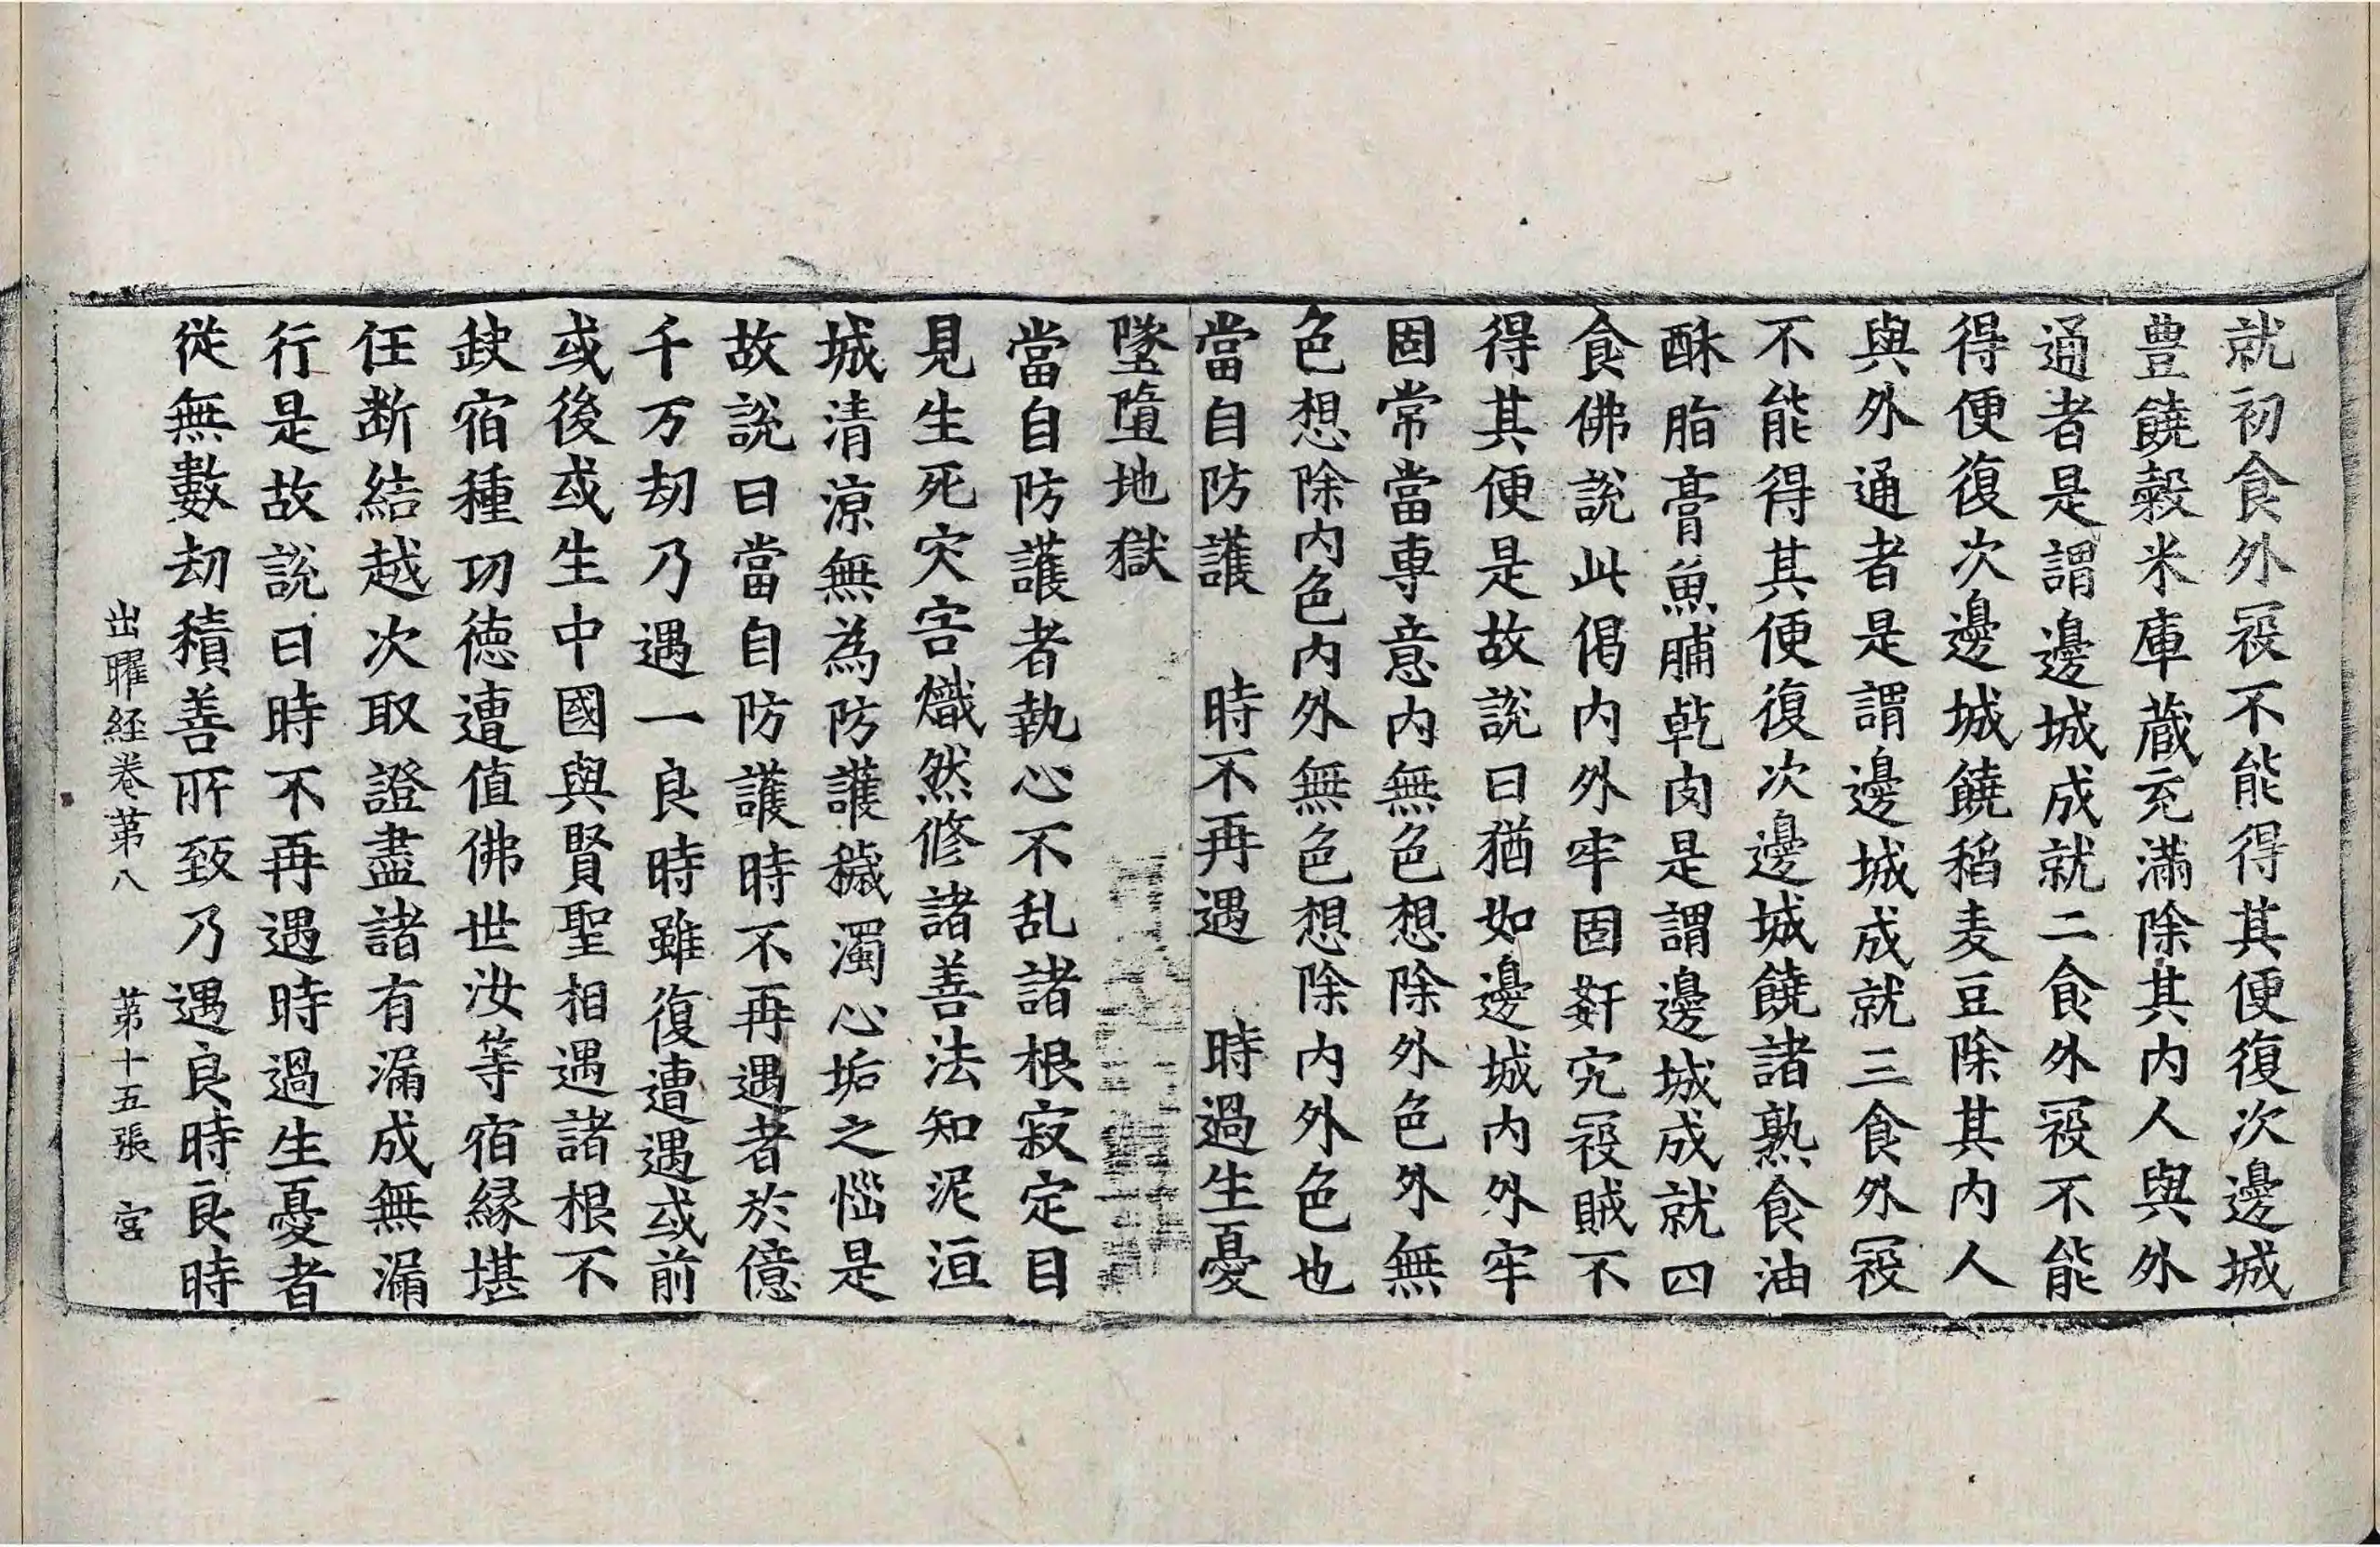 就初食外冦不能得其便復次邊城
豊饒穀米庫蔵充滿除其内人與外
通者是謂邊城成就二食外冦不能
得便復次邊城饒稻麦豆除其内人
與外通者是謂邊城成就三食外冦
不能得其便復次邊城饒諸熟食油
酥脂膏魚脯乾肉是謂邊城成就四
食佛說此偈内外牢固姧宄冦賊不
得其便是故說曰猶如邊城内外牢
固常當專意内無色想除外色外無
色想除内色内外無色想除内外色也
當自防護　時不再遇　時過生憂
墜墮地獄
當自防護者執心不乱諸根寂定目
見生死灾害熾然修諸善法知泥洹
城清涼無為防護穢濁心垢之惱是
故說曰當自防護時不再遇者於億
千万劫乃遇一良時雖復遭遇或前
或後或生中國與賢聖相遇諸根不
缺宿種功徳遭值佛世汝等宿縁堪
任断結越次取證盡諸有漏成無漏
行是故說曰時不再遇時過生憂者
從無數劫積善所致乃遇良時良時
出曜経巻第八　第十五張　宮